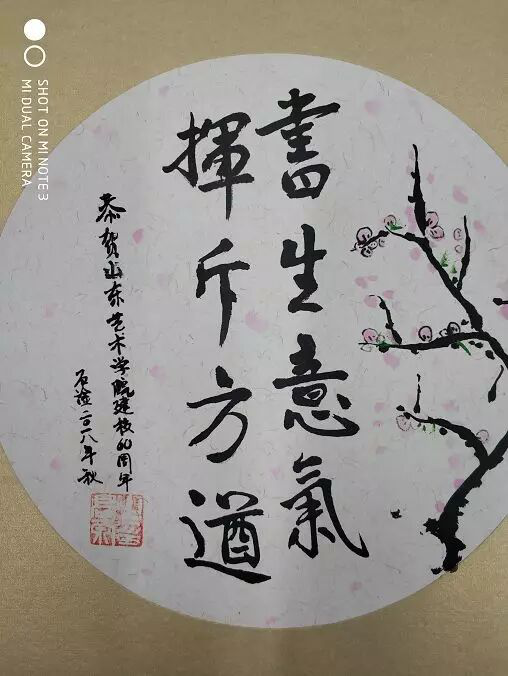 書生意氣
揮斥方遒
恭贺山东艺术学院建校60周年
二〇一八年秋
SHOT ON MI NOTE 3
MI DUAL CAMERA